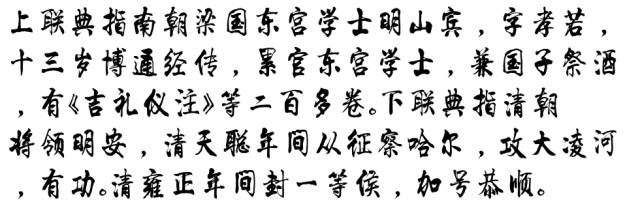 上联典指南朝梁国东宫学士明山宾，字孝若，
十三岁博通经传，累官东宫学士，兼国子祭酒
，有《吉礼仪注》等二百多卷。下联典指清朝
将领明安，清天聪年间从征察哈尔，攻大凌河
，有功。清雍正年间封一等侯，加号恭顺。